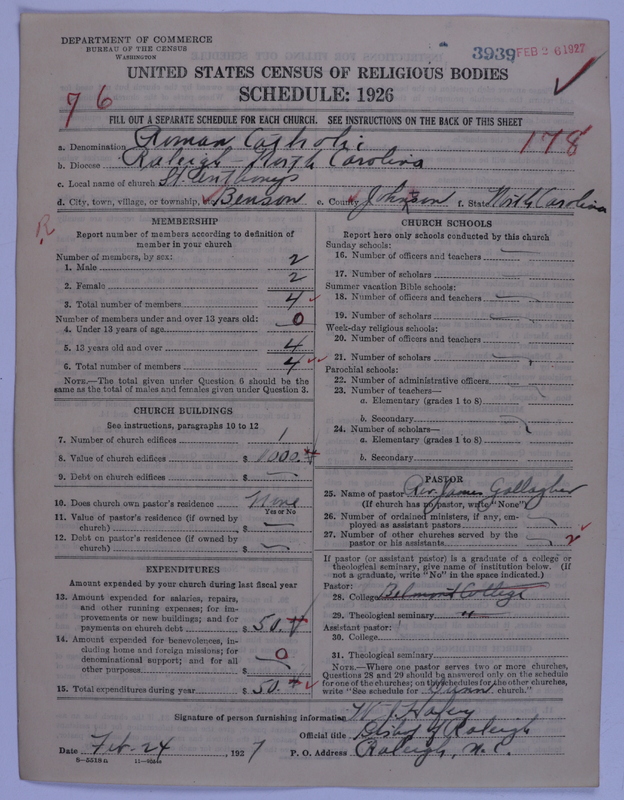 DEPARTMENT OF COMMERCE
BUREAU OF THE CENSUS
WASHINGTON
3939 FEB 26 1927
UNITED STATES CENSUS OF RELIGIOUS BODIES
SCHEDULE: 1926
76
FILL OUT A SEPARATE SCHEDULE FOR EACH CHURCH. SEE INSTRUCTIONS ON THE BACK OF THIS SHEET
178
a. Denomination Roman Catholic
b. Diocese Raleigh North Carolina
c. Local name of church St. Anthonys
d. City, town, village, or township, Benson e. County Johnson f. State North Carolina
R
MEMBERSHIP
Report number of members according to definition of
member in your church
Number of members, by sex:
1. Male 2
2. Female 2
3. Total number of members 4
Number of members under and over 13 years old:
4. Under 13 years of age 0
5. 13 years old and over 4
6. Total number of members 4
NOTE.—The total given under Question 6 should be the
same as the total of males and females given under Question 3.
CHURCH BUILDINGS
See instructions, paragraphs 10 to 12
7. Number of church edifices 1
8. Value of church edifices $ 1000.
9. Debt on church edifices $ —
10. Does church own pastor's residence None
Yes or No
11. Value of pastor's residence (if owned by
church) $ —
12. Debt on pastor's residence (if owned by
church) $ —
EXPENDITURES
Amount expended by your church during last fiscal year
13. Amount expended for salaries, repairs,
and other running expenses; for im-
provements or new buildings; and for
payments on church debt $ 50.
14. Amount expended for benevolences, in-
cluding home and foreign missions; for
denominational support; and for all
other purposes $ 0
15. Total expenditures during year $ 50.
CHURCH SCHOOLS
Report here only schools conducted by this church
Sunday schools:
16. Number of officers and teachers
17. Number of scholars
Summer vacation Bible schools:
18. Number of officers and teachers
19. Number of scholars
Week-day religious schools:
20. Number of officers and teachers
21. Number of scholars
Parochial schools:
22. Number of administrative officers
23. Number of teachers—
a. Elementary (grades 1 to 8)
b. Secondary
24. Number of scholars—
a. Elementary (grades 1 to 8)
b. Secondary
PASTOR
25. Name of pastor Rev. James Gallagher
(If church has no pastor, write "None")
26. Number of ordained ministers, if any, em-
ployed as assistant pastors
27. Number of other churches served by the
pastor or his assistants 2
If pastor (or assistant pastor) is a graduate of a college or
theological seminary, give name of institution below. (If
not a graduate, write "No" in the space indicated.)
Pastor:
28. College Belmont College
29. Theological seminary "
Assistant pastor:
30. College
31. Theological seminary
NOTE.—Where one pastor serves two or more churches,
Questions 28 and 29 should be answered only on the schedule
for one of the churches; on the schedules for the other churches,
write "See schedule for Dunn church."
Signature of person furnishing information W. J. Hafey
Official title Bishop of Raleigh
Date Feb-24, 1927 P. O. Address Raleigh, N. C.